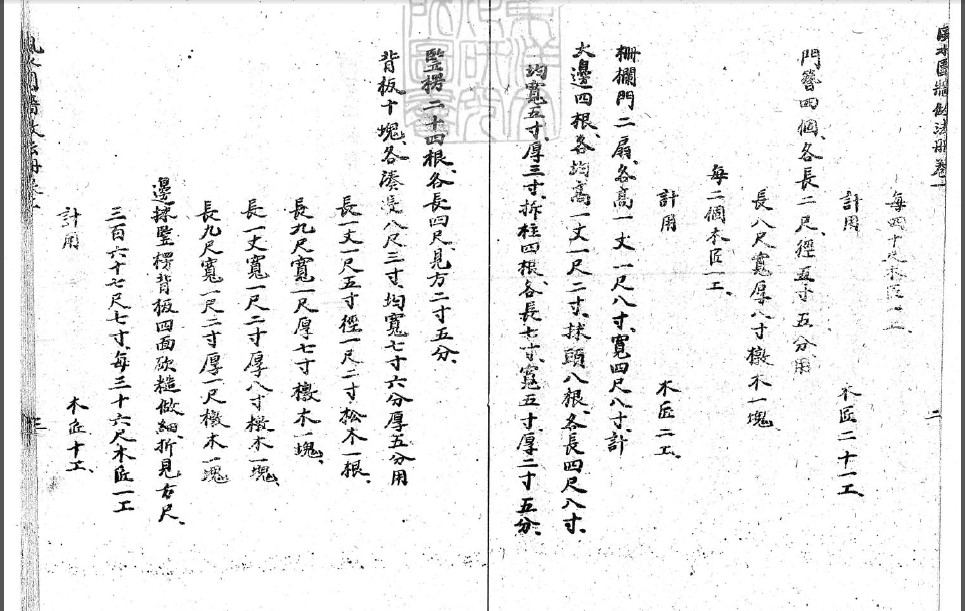 每四十尺木匠一工、
計用　木匠二十一工、
門簪四個、各長二尺、徑五寸五分、用
長八尺寬厚八寸檄木一塊
每二個木匠一工、
計用　木匠二工、
柵欄門二扇、各高一丈一尺八寸、寬四尺八寸、計
大邊四根、各均高一丈一尺二寸、抹頭八根、各長四尺八寸、
均寬五寸、厚三寸、拆柱四根、各長七寸、寬五寸、厚二寸五分、
豎楞二十四根、各長四尺、見方二寸五分、
背板十塊、各湊長八尺三寸、均寬七寸六分厚五分用
長一丈一尺五寸徑一尺二寸松木一根、
長九尺寬一尺厚七寸檄木一塊、
長一丈寬一尺二寸厚八寸檄木一塊、
長九尺寬一尺二寸厚一尺檄木一塊
邊抹豎楞背板四面砍糙做細、折見方尺、
三百六十七尺七寸、每三十六尺木匠一工
計用　木匠十工、
二
三